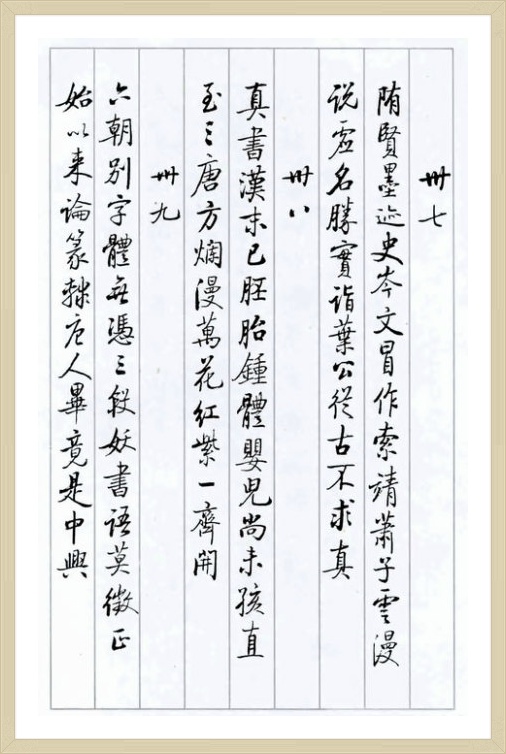 卅七
隋賢墨迹史岑文冒作索靖蕭子雲漫
说虚名勝實詣葉公從古不求真
卅八
真書漢末已胚胎鍾體嬰兒尚未孩直
至三唐方爛漫萬花红紫一齊開
卅九
六朝别字體無憑三段妖書语莫徵正
始以来论篆隸唐人畢竟是中興